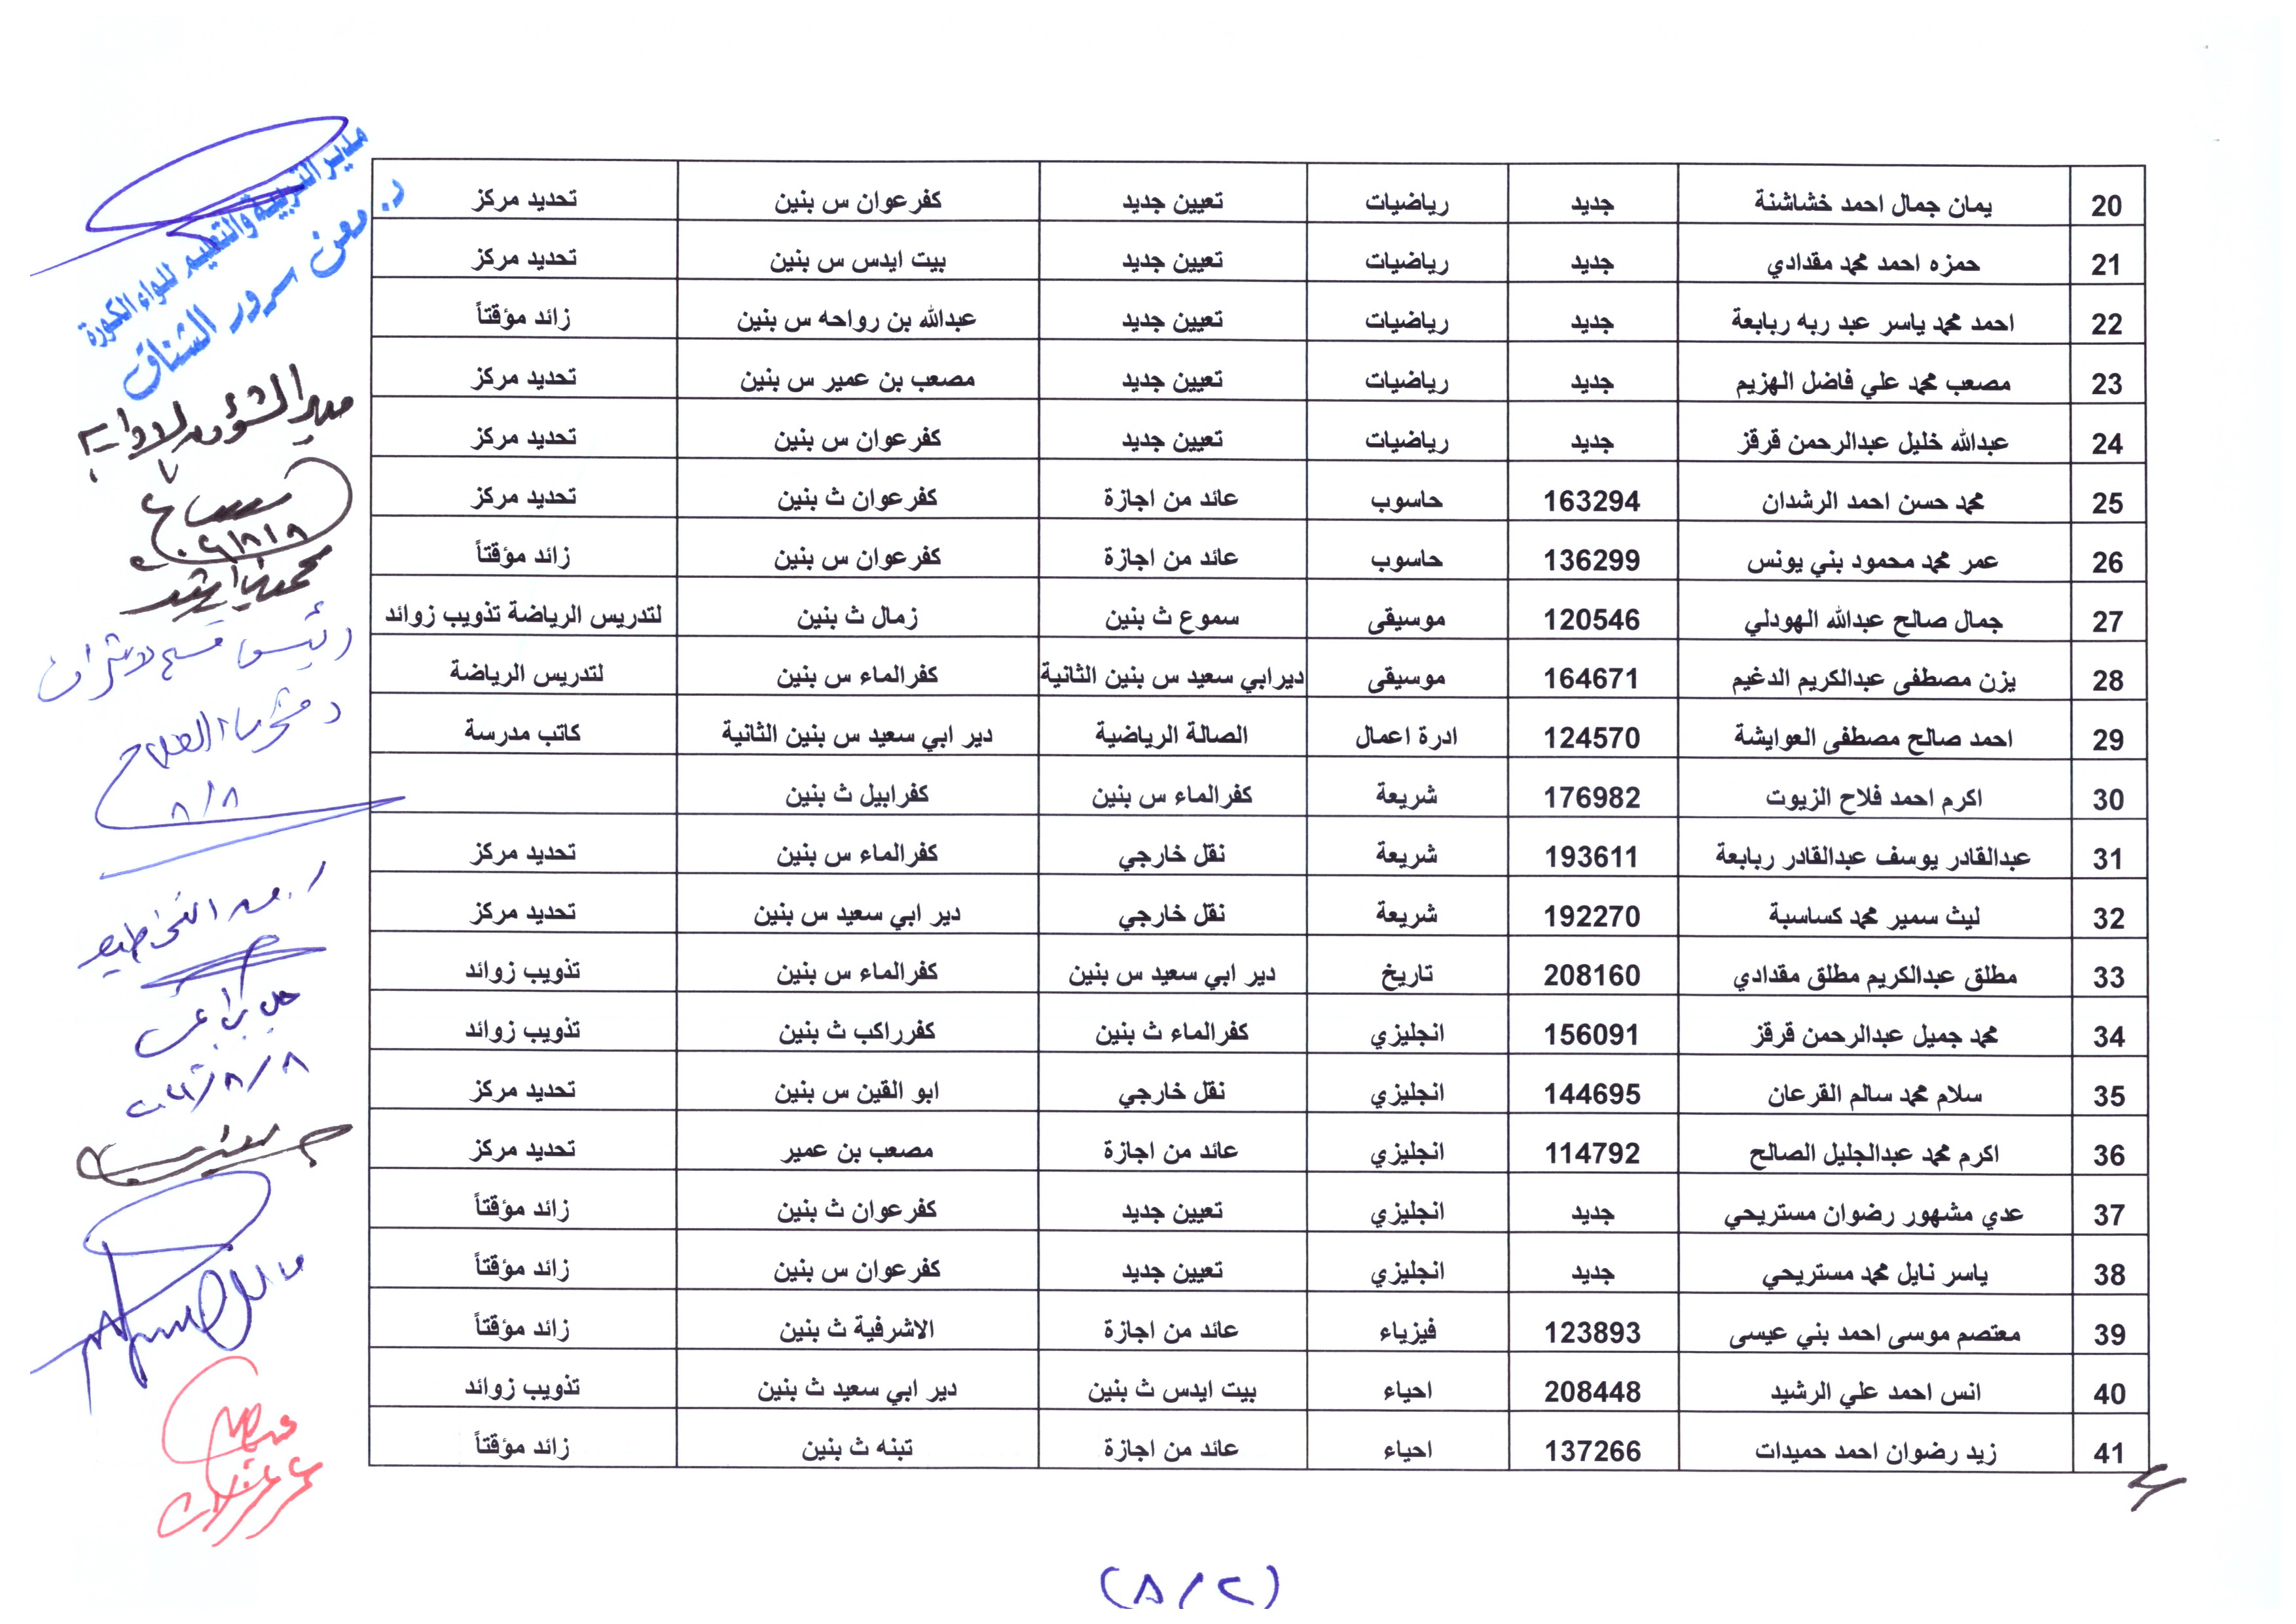 20 يمان جمال احمد خشاشنة جديد رياضيات تعيين جديد كفرعوان س بنين تحديد مركز
21 حمزه احمد محمد مقدادي جديد رياضيات تعيين جديد بيت ايدس س بنين تحديد مركز
22 احمد محمد ياسر عبد ربه ربابعة جديد رياضيات تعيين جديد عبدالله بن رواحه س بنين زائد مؤقتاً
23 مصعب محمد علي فاضل الهزيم جديد رياضيات تعيين جديد مصعب بن عمير س بنين تحديد مركز
24 عبدالله خليل عبدالرحمن قرقز جديد رياضيات تعيين جديد كفرعوان س بنين تحديد مركز
25 محمد حسن احمد الرشدان 163294 حاسوب عائد من اجازة كفرعوان ث بنين تحديد مركز
26 عمر محمد محمود بني يونس 136299 حاسوب عائد من اجازة كفرعوان س بنين زائد مؤقتاً
27 جمال صالح عبدالله الهودلي 120546 موسيقى سموع ث بنين زمال ث بنين لتدريس الرياضة تذويب زوائد
28 يزن مصطفى عبدالكريم الدغيم 164671 موسيقى ديرابي سعيد س بنين الثانية كفرالماء س بنين لتدريس الرياضة
29 احمد صالح مصطفى العوايشة 124570 ادرة اعمال الصالة الرياضية دير ابي سعيد س بنين الثانية كاتب مدرسة
30 اكرم احمد فلاح الزيوت 176982 شريعة كفرالماء س بنين كفرابيل ث بنين
31 عبدالقادر يوسف عبدالقادر ربابعة 193611 شريعة نقل خارجي كفرالماء س بنين تحديد مركز
32 ليث سمير محمد كساسبة 192270 شريعة نقل خارجي دير ابي سعيد س بنين تحديد مركز
33 مطلق عبدالكريم مطلق مقدادي 208160 تاريخ دير ابي سعيد س بنين كفرالماء س بنين تذويب زوائد
34 محمد جميل عبدالرحمن قرقز 156091 انجليزي كفرالماء ث بنين كفرراكب ث بنين تذويب زوائد
35 سلام محمد سالم القرعان 144695 انجليزي نقل خارجي ابو القين س بنين تحديد مركز
36 اكرم محمد عبدالجليل الصالح 114792 انجليزي عائد من اجازة مصعب بن عمير تحديد مركز
37 عدي مشهور رضوان مستريحي جديد انجليزي تعيين جديد كفرعوان ث بنين زائد مؤقتاً
38 ياسر نايل محمد مستريحي جديد انجليزي تعيين جديد كفرعوان س بنين زائد مؤقتاً
39 معتصم موسى احمد بني عيسى 123893 فيزياء عائد من اجازة الاشرفية ث بنين زائد مؤقتاً
40 انس احمد علي الرشيد 208448 احياء بيت ايدس ث بنين دير ابي سعيد ث بنين تذويب زوائد
41 زيد رضوان احمد حميدات 137266 احياء عائد من اجازة تبنه ث بنين زائد مؤقتاً
مدير التربية والتعليم للواء الكورة
د. معن سرور الشناق
مدير الشؤون الادارية
رئيس قسم الاشراف
٨/٨
(٢/٨)